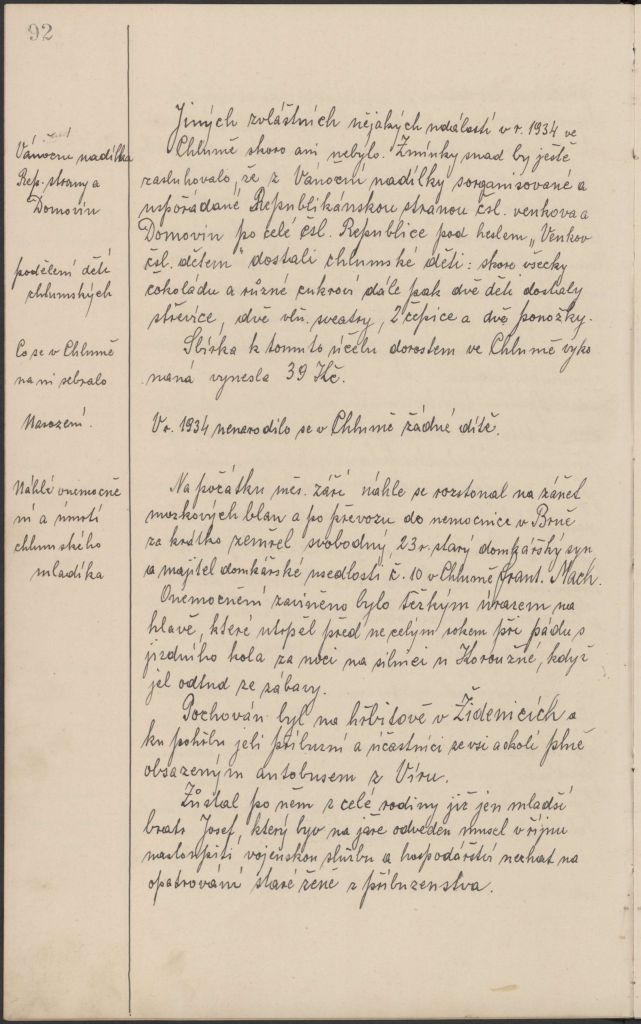 92
Jiných zvláštních nějakých událostí v r. 1934 ve
Chlumě skoro ani nebylo. Zmínky snad by ještě
zasluhovalo, že z Vánoční nadílky sorganisované a
uspořádané Republikánskou stranou čsl. venkova a
Domovin po celé čsl. Republice pod heslem „Venkov
čsl. dětem" dostali chlumské děti: skoro všecky
čokoládu a různé cukroví dále pak dvě děti dostaly
střevíce, dvě vln. sveatry, 2 čepice a dvě ponožky.
Sbírka k tomuto účelu dorostem ve Chlumě vyko
naná vynesla 39 Kč.
V r. 1934 nenarodilo se v Chlumě žádné dítě.
Na počátku měs. září náhle se rozstonal na zánět
mozkových blan a po převozu do nemocnice v Brně
za krátko zemřel svobodný, 23 r. starý domkářský syn
a majitel domkářské usedlosti č. 10 v Chlumě Frant. Mach.
Onemocnění zaviněno bylo těžkým úrazem na
hlavě, které utrpěl před necelým rokem při pádu s
jízdního kola za noci na silnici u Koroužné, když
jel odtud ze zábavy.
Pochován byl na hřbitově v Židenicích a
ku pohřbu jeli příbuzní a účastníci ze vsi a okolí plně
obsazeným autobusem z Víru.
Zůstal po něm z celé rodiny již jen mladší
bratr Josef, který byv na jaře odveden musel v říjnu
nastoupiti vojenskou službu a hospodářství nechat na
opatrování staré ženě z příbuzenstva.
Vánoční nadílka
Rep. strany a
Domovin
podělení dětí
chlumských
Co se v Chlumě
na ni sebralo
Narození.
Náhlé onemocně
ní a úmrtí
chlumského
mladíka